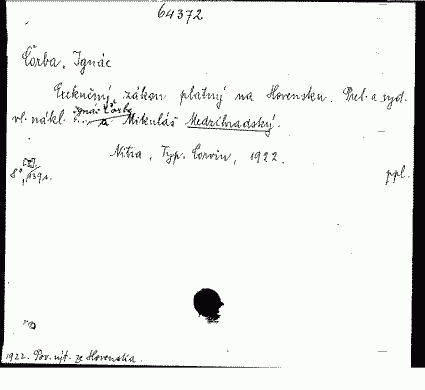 64372
Čorba, Ignác
Exekučný zákon platný na Slovensku. Prel. a vyd.
vl. nákl. Ignác Čorba a Mikuláš Medzihradský.
Nitra, Typ. Corvin, 1922.
8°, 139 s. ppl.
1922. Pov. výt. ze Slovenska.